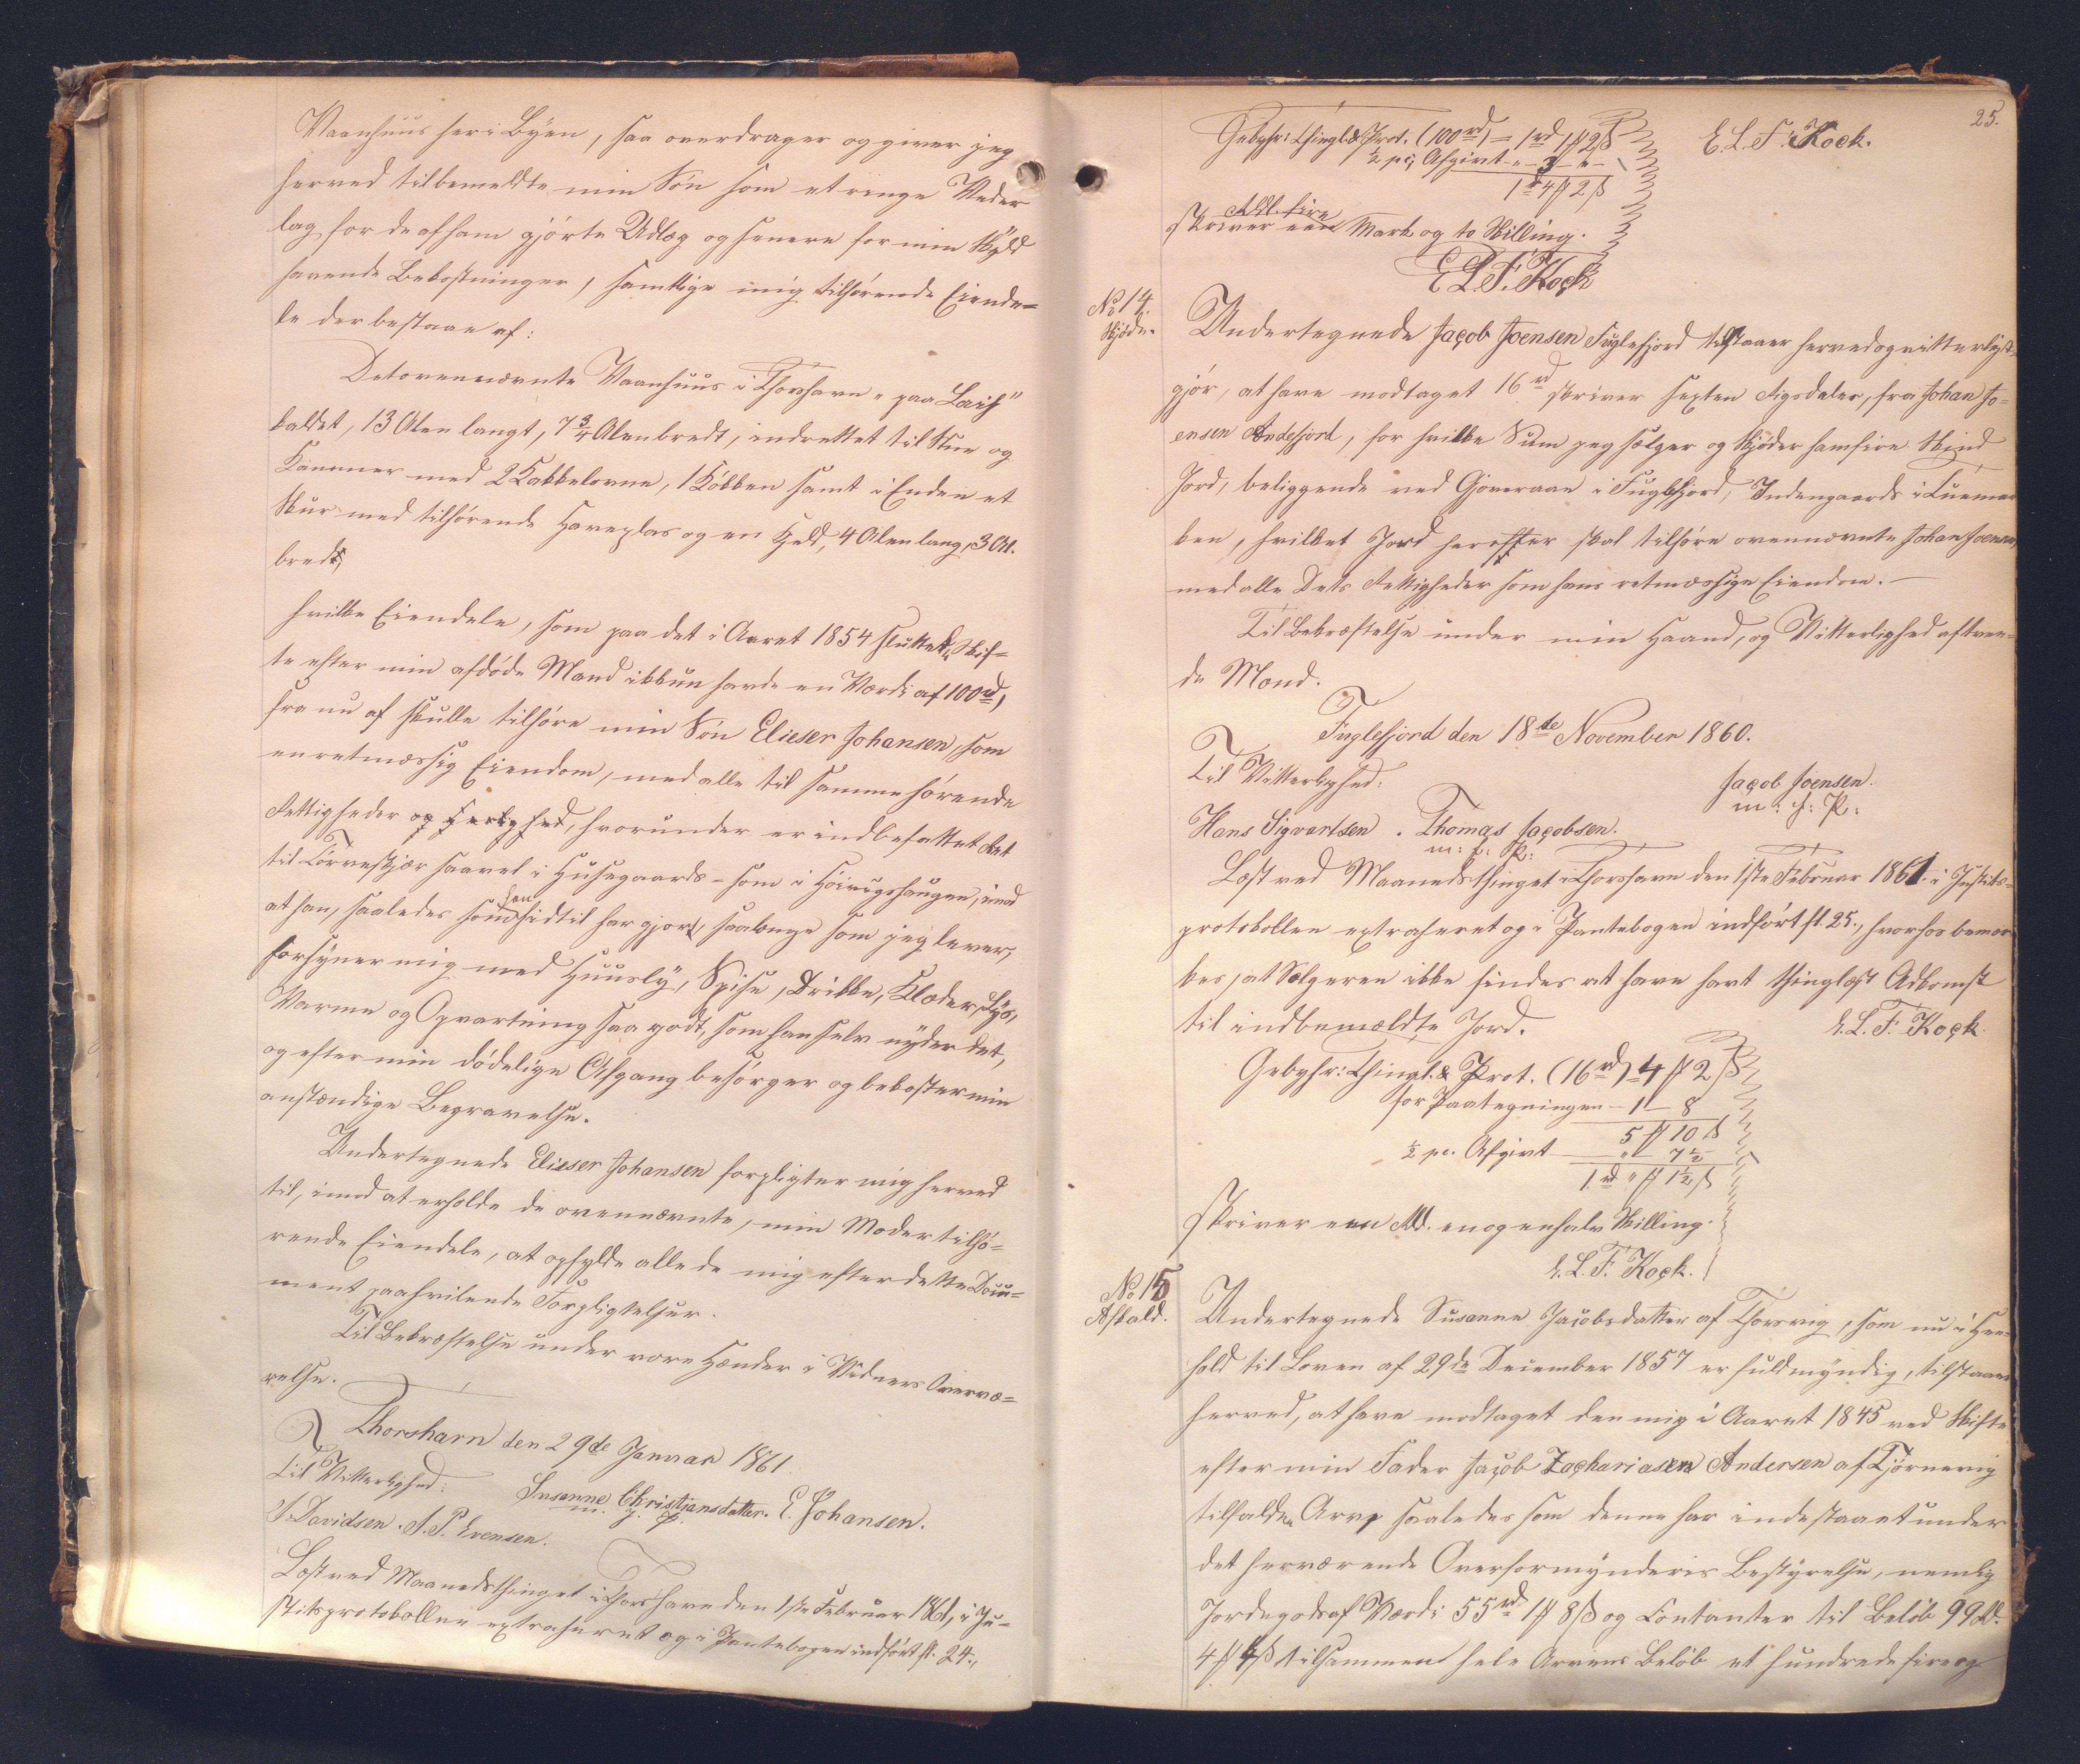 Vaanhuus her i Byen, saa overdrager og giver jeg
herved tilbemeldte min Søn som et ringe Veder
lag for de af ham gjørte Udlæg og senere for min Skyld
havende Bekostninger, samtlige mig tilhørende Eiende=
le der bestaae af:
Det ovennævnte Vaanhuus i Thorshavn "paa Laih"
kaldet, 13 Alen langt, 7 3/4 Alen bredt, indrettet til Stue og
Kammer med 2 Kakkelovne, 1 Kökken samt i Enden et
Skur med tilhørende Haveplas og en Hjeld, 4 Alen lang, 3 Al.
bredt,
hvilke Eiendele, som paa det i Aaret 1854 sluttede Skif=
te efter min afdøde Mand ikkun havde en Værdi af 100 rd,
fra nu af skulle tilhøre min Søn Elieser Johansen, som
en retmæssig Eiendom, med alle til samme hørende
Rettigheder og Herlighed, hvorunder er indbefattet Ret
til Törveskjær saavel i Husegaards- som i Hoivigshaugen, imod
at han, saaledes som han hidtil har gjort, saalænge som jeg lever,
forsyner mig med Huusly, Spise, Drikke, Klæder, Lys,
Varme og Opvartning saa godt, som han selv nyder det,
og efter min dödelige Afgang besörger og bekoster min
anstændige Begravelse.
Undertegnede Elieser Johansen forpligter mig herved
til, imod at erholde de ovennævnte, min Moder tilhö=
rende Eiendele, at opfylde alle de mig efter dette Docu=
ment paahvilende Forpligtelser.
Til Bekræftelse under vore Hænder i Vidners Overvæ=
relse.
Thorshavn den 29de Januar 1861.
Til Vitterlighed: Susanne Christiansdatter. E. Johansen.
m. f. P.
S. Davidsen. S. P. Evensen.
Læst ved Maanedsthinget i Thorshavn den 1ste Februar 1861, i Ju=
stitsprotokollen extraheret og i Pantebogen indført fl. 24.,
25.
Gebyhr: Thingl. & Prot. (100 rd) = 1 rd 1 ₰ 2 ß
E. L. F. Kock.
½ pC. Afgivt - " - 3 - " -
1 rd 4 ₰ 2 ß
Rdl. fire
skriver een Mark og to Skilling.
E. L. F. Kock
No 14.
Skjøde.
Undertegnede Jacob Joensen Fuglefjord tilstaaer herved og vitterligt=
gjør, at have modtaget 16 rd skriver sexten Rigsdaler, fra Johan Jo=
ensen Andefjord, for hvilke Sum jeg sælger og skjøder ham fire Skind
Jord, beliggende ved Gjøveraae i Fuglefjord, Indengaards i Lüemar
ken, hvilket Jord herefter skal tilhøre ovennævnte Johan Joensen,
med alle Dets Rettigheder som hans retmæssige Eiendom.
Til Bekræftelse under min Haand, og Vitterlighed af tven=
de Mænd.
Fuglefjord den 18de November 1860.
Til Vitterlighed:
Jacob Joensen.
m: f: P:
Hans Sigvartsen. Thomas Jacobsen.
m: f: P:
Læst ved Maanedsthinget i Thorshavn den 1ste Februar 1861. i Justits=
protokollen extraheret og i Pantebogen indført fl. 25., hvorhos bemær
kes, at Sælgeren ikke findes at have havt thinglæst Adkomst
til indbemældte Jord.
E. L. F. Kock.
Gebyhr: Thingl. & Prot. (16 rd) 4 ₰ 2 ß
for Paategningen - 1 - 8
5 ₰ 10 ß
½ pC. Afgivt - " - 7½
1 rd " ₰ 1½ ß
skriver een Rd. en og en halv Skilling.
E. L. F. Kock.
No 15
Afkald.
Undertegnede Susanne Jacobsdatter af Thorsvig, som nu i Hen=
hold til Loven af 29de December 1857 er fuldmyndig, tilstaaer
herved, at have modtaget den mig i Aaret 1845 ved Skifte
efter min Fader Jacob Zachariasen Andersen af Tjørnevig
tilfaldne Arv, saaledes som denne har indestaaet under
det herværende Overformynderis Bestyrelse, nemlig
Jordegods af Værdi 55 rd 1 ₰ 8 ß og Contanter til Beløb 99 Rd.
4 ₰ 4 ß tilsammen hele Arvens Beløb et hundrede fire og